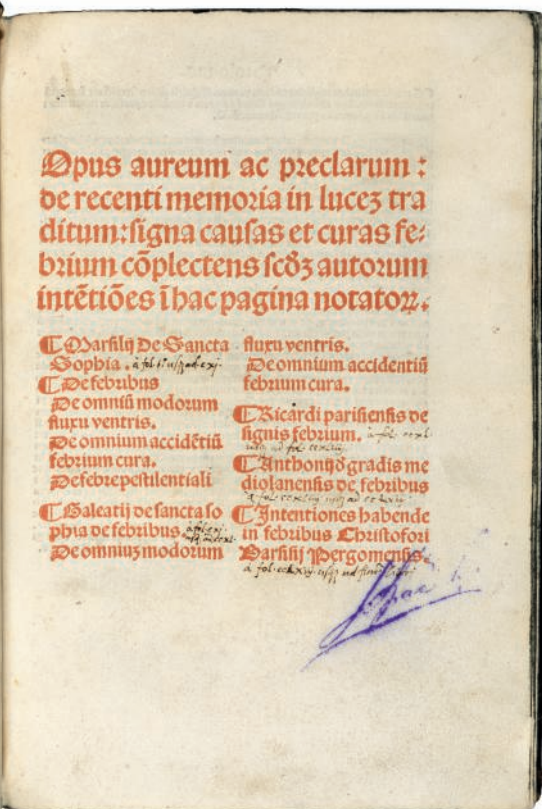 Opus aureum ac preclarum:
de recenti memoria in lucez tra
ditum:signa causas et curas fe⸗
brium cōplectens scdȝ autorum
intētiōes ī hac pagina notatoꝝ.
¶ Marsilij de Sancta
Sophia . a fol.
¶ De febribus
De omniū modorum
fluxu ventris.
De omnium accidētiū
febrium cura.
De febre pestilentiali
¶ Galeatij de sancta so
phia de febribus
De omniuz modorum
fluxu ventris.
De omnium accidentiū
febrium cura.
¶ Ricardi parisiensis de
signis febrium. a fol.
ad fol.
¶ Anthonij d̄ gradis me
diolanensis de febribus
a fol. ad
¶ Intentiones habende
in febribus Christofori
Barsisij Pergomensis.
a fol.